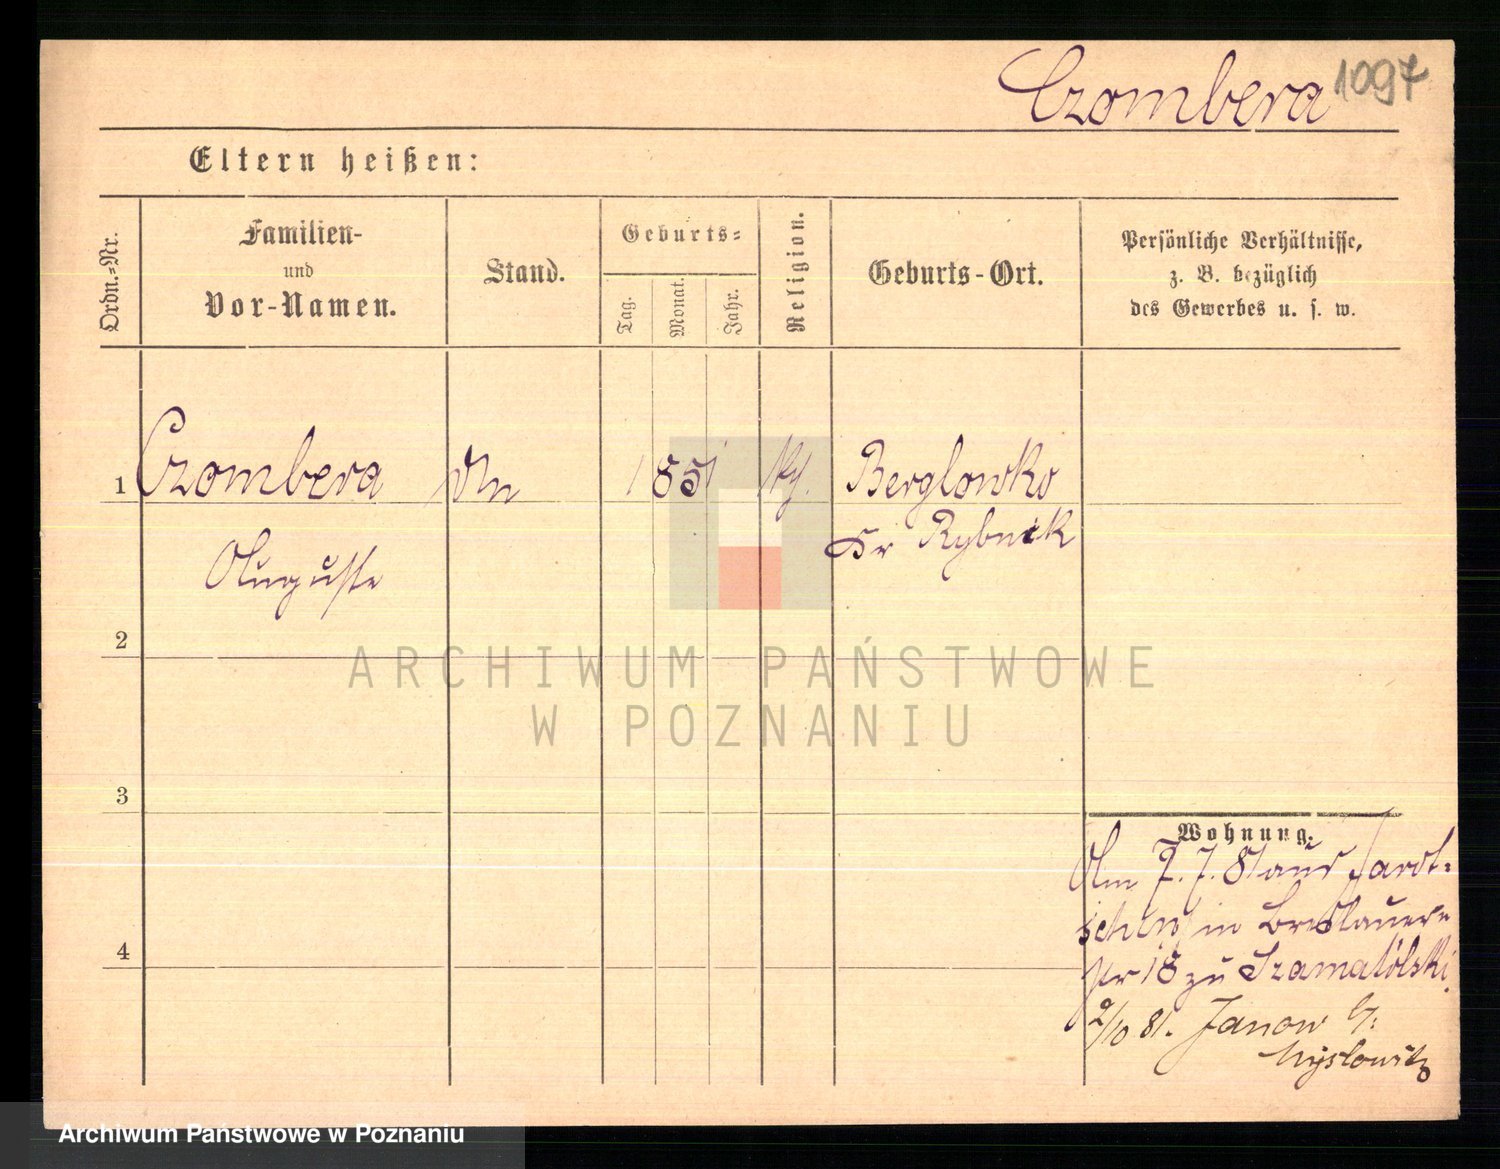 Czombera 1097
Eltern heißen:
Ordn.-Nr.
Familien-
und
Vor-Namen.
Stand.
Geburts-
Tag.
Monat.
Jahr.
Religion.
Geburts-Ort.
Persönliche Verhältnisse,
z. B. bezüglich
des Gewerbes u. s. w.
1 Czombera 1851 Berglowko
Kr Rybnik
Auguste
2
ARCHIWUM PAŃSTWOWE
W POZNANIU
3
Wohnung.
Am 7.7.81 aus Jarot-
schin in Breslauer
Nr 18 zu Szamatólski
2/10 81. Janow b/
Myslowitz
4
Archiwum Państwowe w Poznaniu